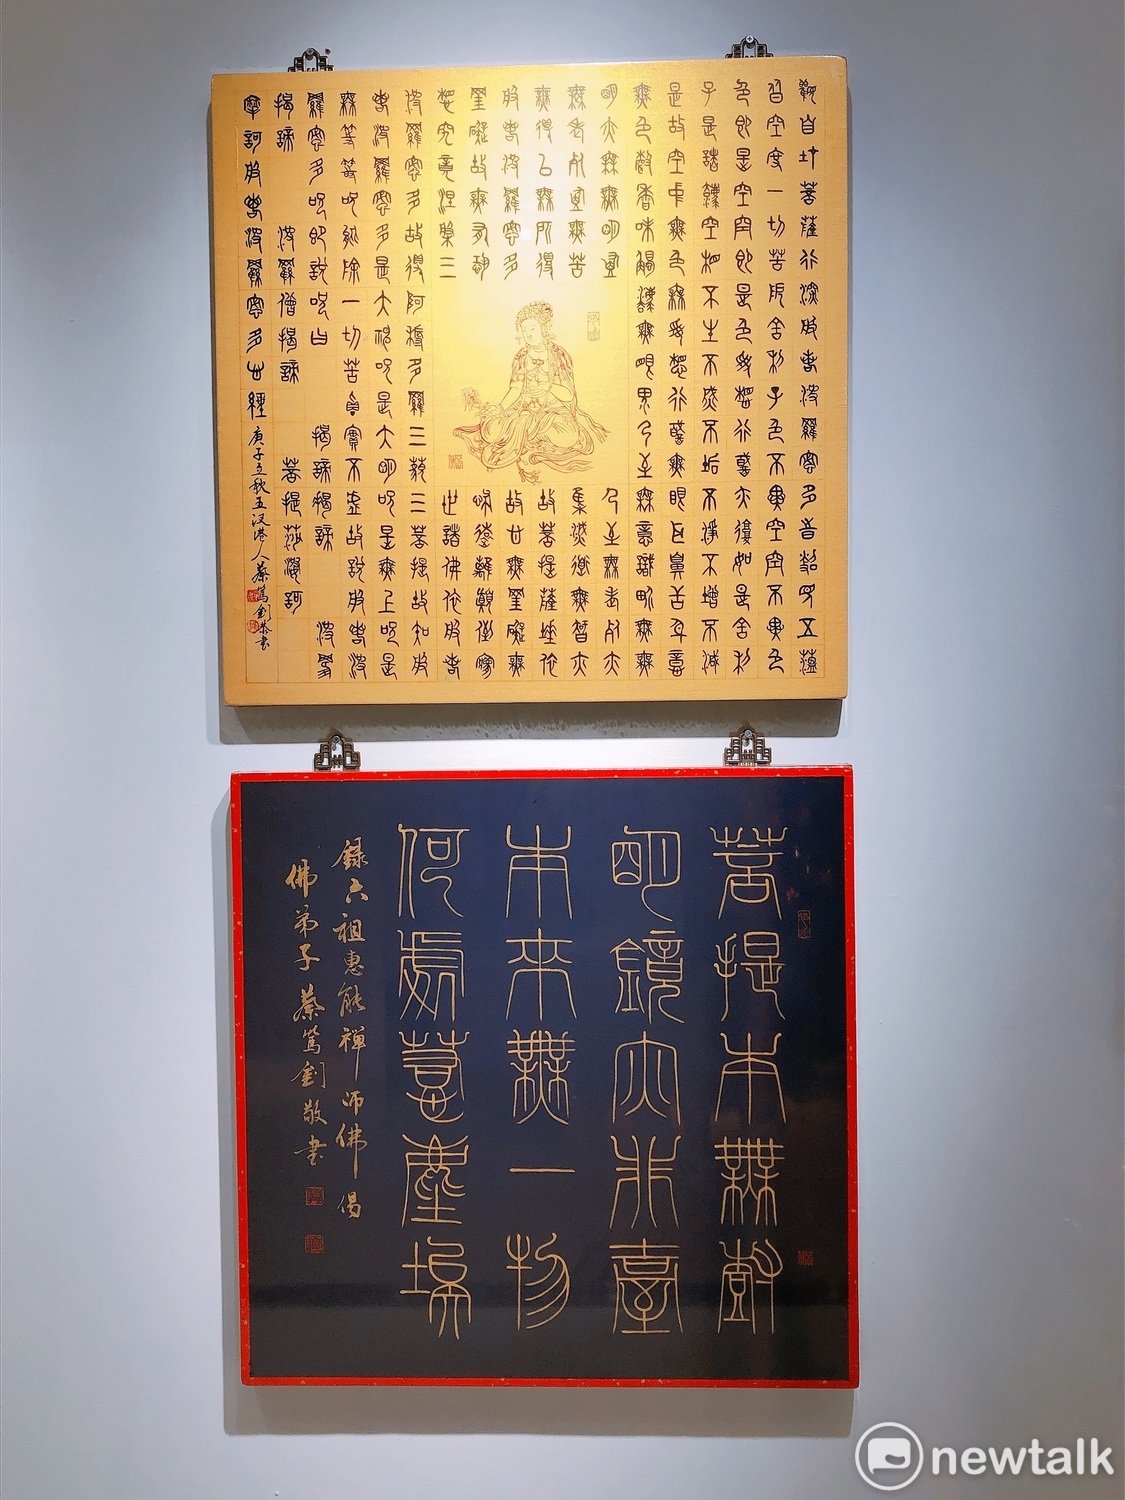 觀自在菩薩行深般若波羅蜜多時照見五蘊
皆空度一切苦厄舍利子色不異空空不異色
色即是空空即是色受想行識亦復如是舍利
子是諸法空相不生不滅不垢不淨不增不減
是故空中無色無受想行識無眼耳鼻舌身意
無色聲香味觸法無眼界乃至無意識界無無
明亦無無明盡乃至無老死亦
無老死盡無苦集滅道無智亦
無得以無所得故菩提薩埵依
般若波羅蜜多故心無罣礙無
罣礙故無有恐怖遠離顛倒夢
想究竟涅槃三世諸佛依般若
波羅蜜多故得阿耨多羅三藐三菩提故知般
若波羅蜜多是大神咒是大明咒是無上咒是
無等等咒能除一切苦真實不虛故說般若波
羅蜜多咒即說咒曰 揭諦揭諦 波羅
揭諦 波羅僧揭諦 菩提莎婆訶
摩訶般若波羅蜜多心經 庚子立秋五汊港人蔡篤釗恭書
菩提本無樹
明鏡亦非臺
本來無一物
何處惹塵埃
錄六祖惠能禪師佛偈
佛弟子蔡篤釗敬書
newtalk